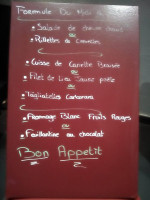 Formule Du
• Salade de chèvre chaud
ou
• Rillettes de
• Cuisse de Canette Braisée
ou
• Filet de Lieu Jaune poêlé
ou
• Tagliatelles Carbonara
• Fromage Blanc Fruits Rouges
ou
• Feuillantine au chocolat
Bon Appetit